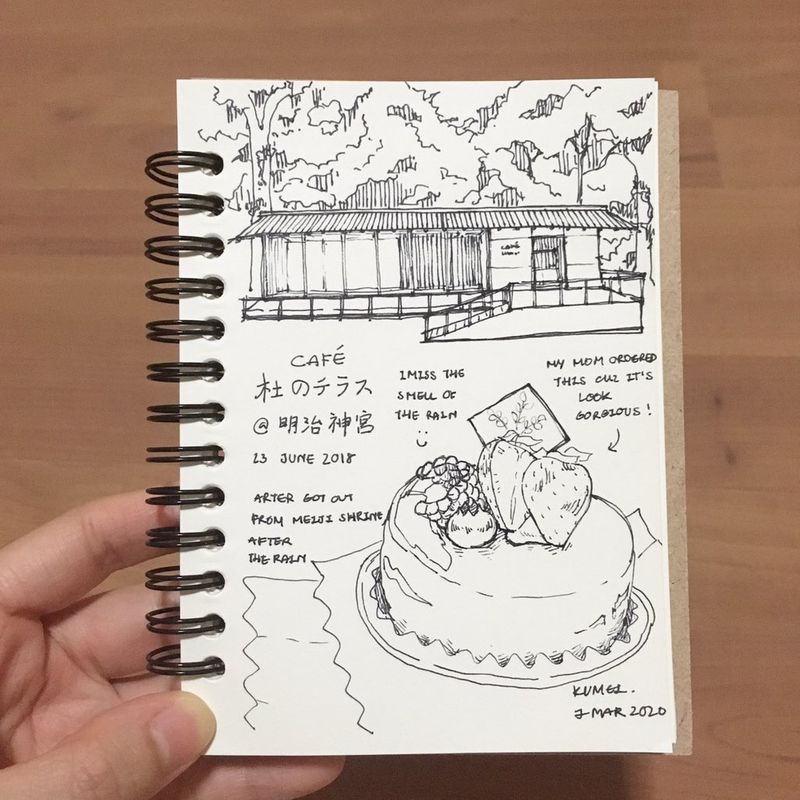 CAFÉ
CAFÉ
杜のテラス
@ 明治神宮
23 JUNE 2018
AFTER GOT OUT
FROM MEIJI SHRINE
AFTER
THE RAIN
I MISS THE
SMELL OF
THE RAIN
MY MOM ORDERED
THIS CUZ IT'S
LOOK
GORGIOUS!
KUMEI.
MAR 2020